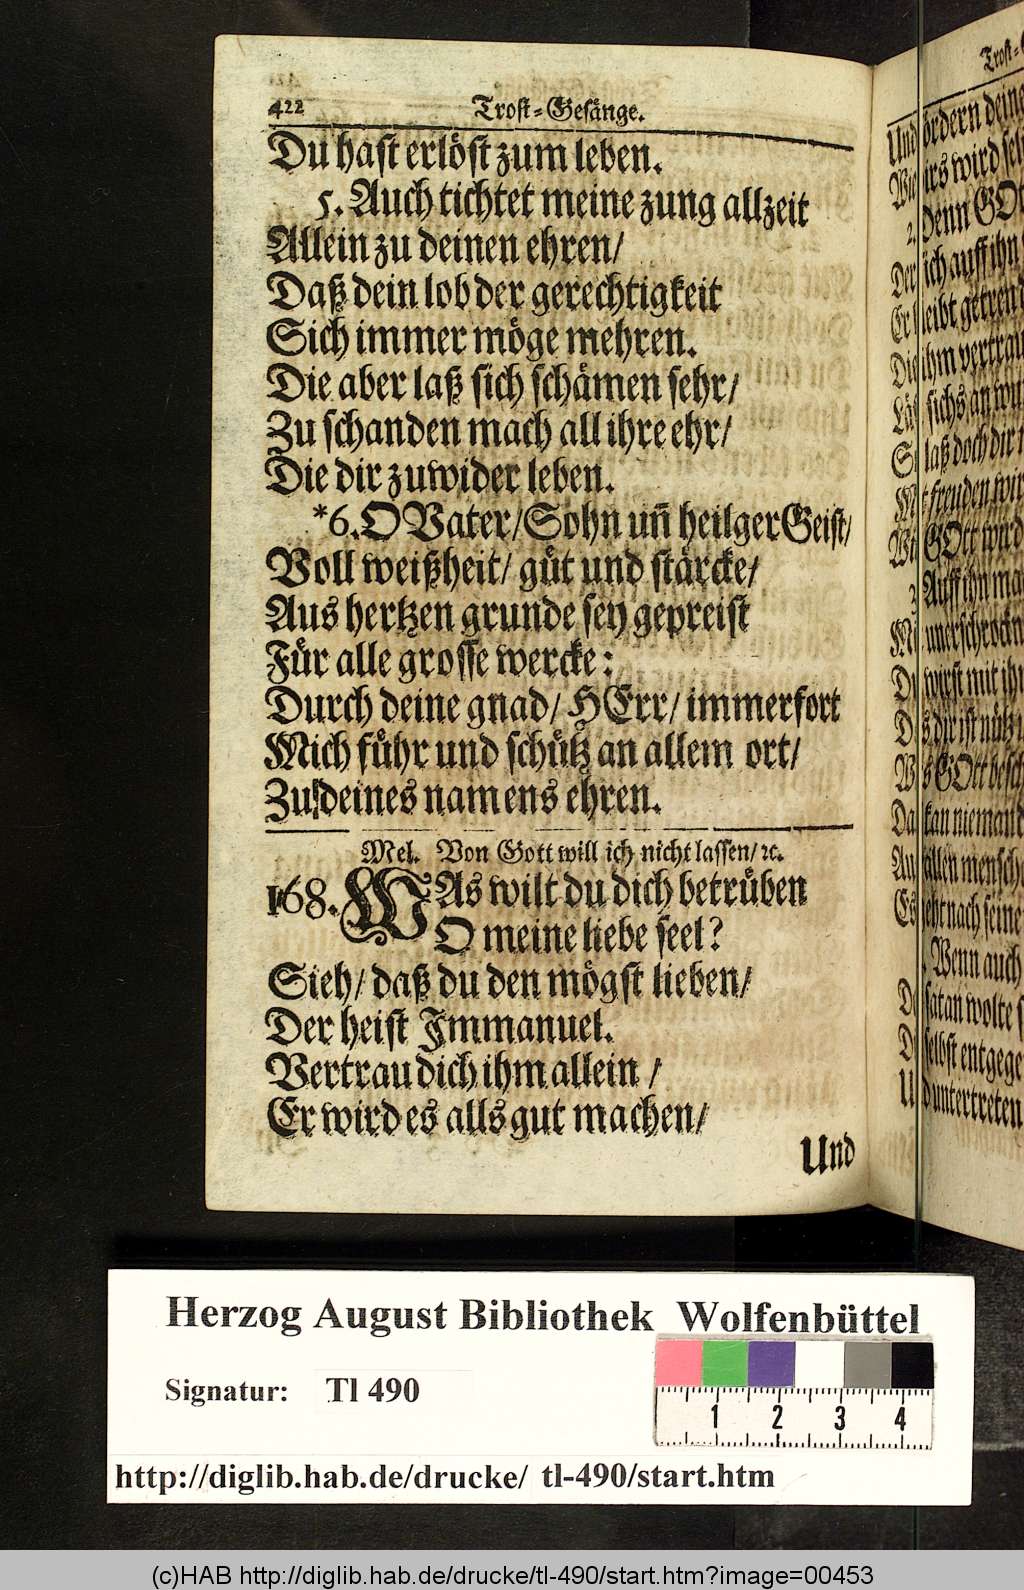 422 Trost-Gesänge.
Du hast erlöst zum leben.
5. Auch tichtet meine zung allzeit
Allein zu deinen ehren/
Daß dein lob der gerechtigkeit
Sich immer möge mehren.
Die aber laß sich schämen sehr/
Zu schanden mach all ihre ehr/
Die dir zuwider leben.
*6. O Vater/ Sohn uñ heilger Geist/
Voll weißheit/ güt und stärcke/
Aus hertzen grunde sey gepreist
Für alle grosse wercke:
Durch deine gnad/ HErr/ immerfort
Mich führ und schütz an allem ort/
Zu deines namens ehren.
Mel. Von Gott will ich nicht lassen/ ꝛc.
168. WAs wilt du dich betrüben
O meine liebe seel?
Sieh/ daß du den mögst lieben/
Der heist Immanuel.
Vertrau dich ihm allein /
Er wird es alls gut machen/
Und
Herzog August Bibliothek Wolfenbüttel
Signatur: Tl 490
1 2 3 4
http://diglib.hab.de/drucke/ tl-490/start.htm
(c)HAB http://diglib.hab.de/drucke/tl-490/start.htm?image=00453